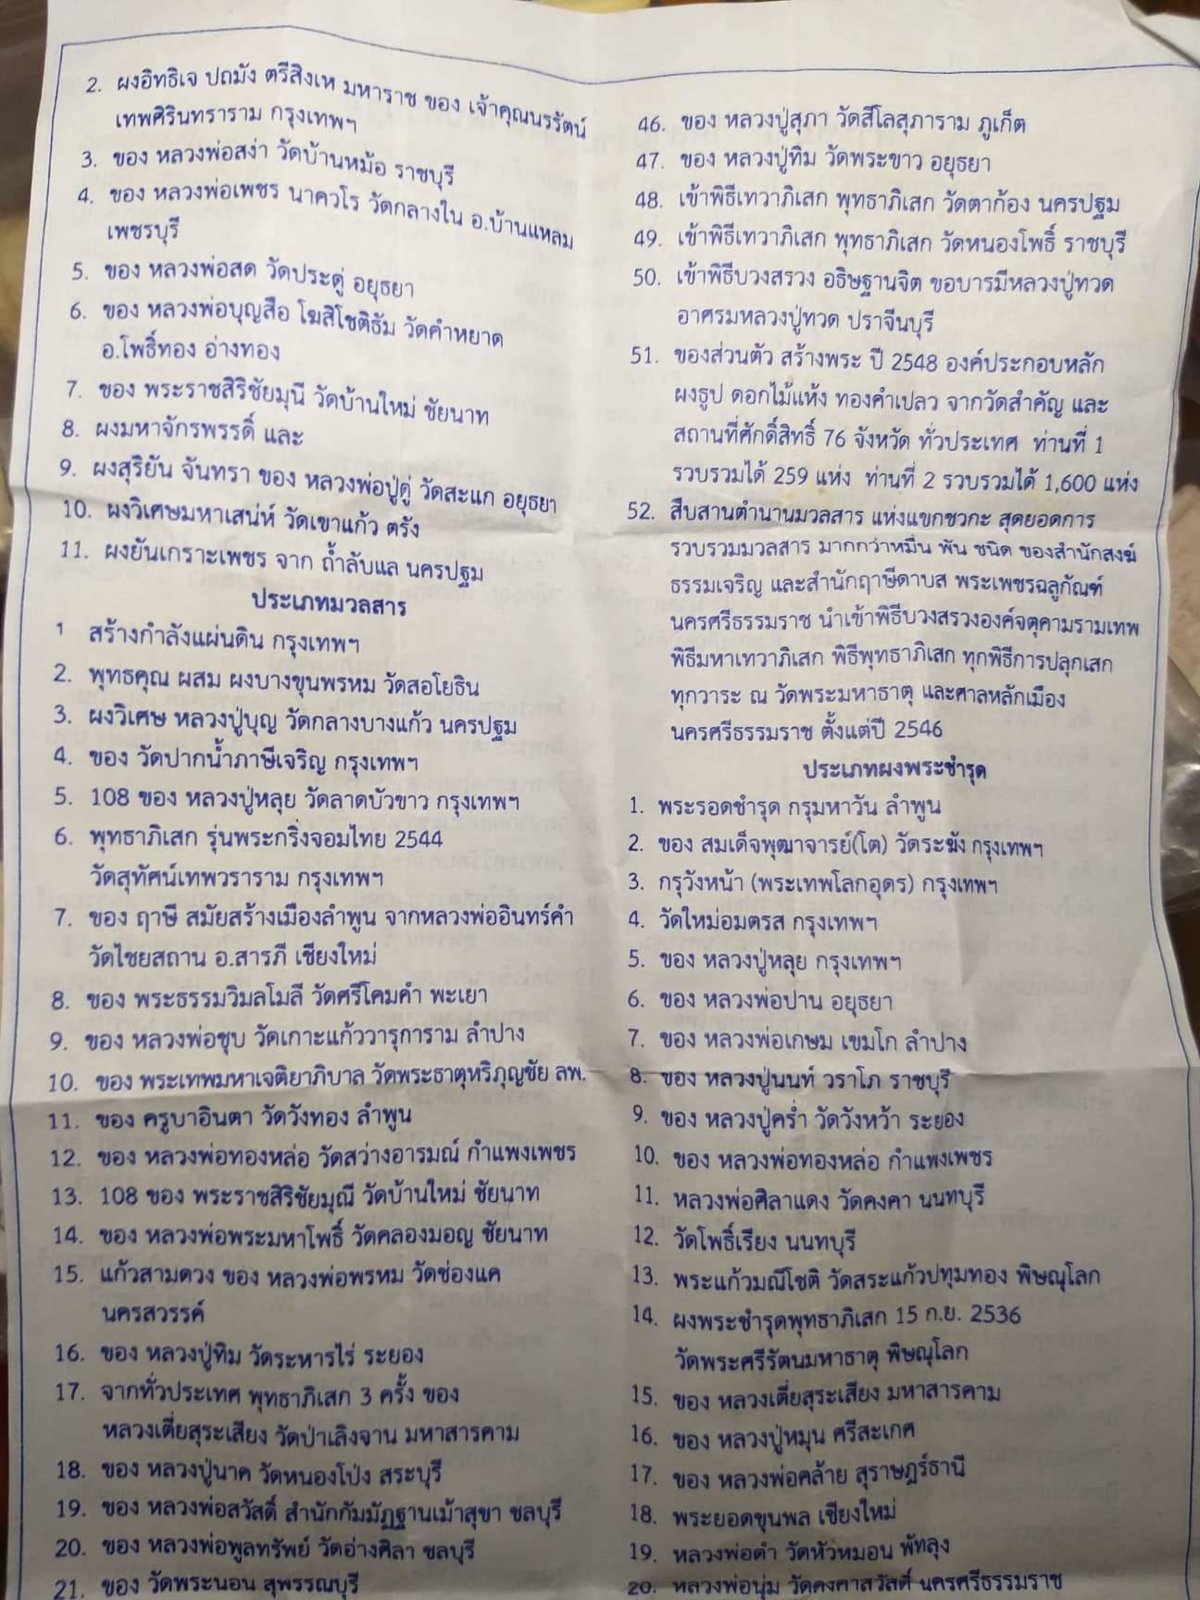 2. ผงอิทธิเจ ปถมัง ตรีสิงเห มหาราช ของ เจ้าคุณนรรัตน์
เทพศิรินทราราม กรุงเทพฯ
3. ของ หลวงพ่อสง่า วัดบ้านหม้อ ราชบุรี
4. ของ หลวงพ่อเพชร นาควโร วัดกลางใน อ.บ้านแหลม
เพชรบุรี
5. ของ หลวงพ่อสด วัดประดู่ อยุธยา
6. ของ หลวงพ่อบุญสือ โฆสิโชติธัม วัดคำหยาด
อ.โพธิ์ทอง อ่างทอง
7. ของ พระราชสิริชัยมุนี วัดบ้านใหม่ ชัยนาท
8. ผงมหาจักรพรรดิ์ และ
9. ผงสุริยัน จันทรา ของ หลวงพ่อปู่ดู่ วัดสะแก อยุธยา
10. ผงวิเศษมหาเสน่ห์ วัดเขาแก้ว ตรัง
11. ผงยันเกราะเพชร จาก ถ้ำลับแล นครปฐม
ประเภทมวลสาร
1 สร้างกำลังแผ่นดิน กรุงเทพฯ
2. พุทธคุณ ผสม ผงบางขุนพรหม วัดสอโยธิน
3. ผงวิเศษ หลวงปู่บุญ วัดกลางบางแก้ว นครปฐม
4. ของ วัดปากน้ำภาษีเจริญ กรุงเทพฯ
5. 108 ของ หลวงปู่หลุย วัดลาดบัวขาว กรุงเทพฯ
6. พุทธาภิเสก รุ่นพระกริ่งจอมไทย 2544
วัดสุทัศน์เทพวราราม กรุงเทพฯ
7. ของ ฤาษี สมัยสร้างเมืองลำพูน จากหลวงพ่ออินทร์คำ
วัดไชยสถาน อ.สารภี เชียงใหม่
8. ของ พระธรรมวิมลโมลี วัดศรีโคมคำ พะเยา
9. ของ หลวงพ่อชุบ วัดเกาะแก้ววารุการาม ลำปาง
10. ของ พระเทพมหาเจติยาภิบาล วัดพระธาตุหริภุญชัย ลพ.
11. ของ ครูบาอินตา วัดวังทอง ลำพูน
12. ของ หลวงพ่อทองหล่อ วัดสว่างอารมณ์ กำแพงเพชร
13. 108 ของ พระราชสิริชัยมุณี วัดบ้านใหม่ ชัยนาท
14. ของ หลวงพ่อพระมหาโพธิ์ วัดคลองมอญ ชัยนาท
15. แก้วสามดวง ของ หลวงพ่อพรหม วัดช่องแค
นครสวรรค์
16. ของ หลวงปู่ทิม วัดระหารไร่ ระยอง
17. จากทั่วประเทศ พุทธาภิเสก 3 ครั้ง ของ
หลวงเตี่ยสุระเสียง วัดป่าเลิงจาน มหาสารคาม
18. ของ หลวงปู่นาค วัดหนองโป่ง สระบุรี
19. ของ หลวงพ่อสวัสดิ์ สำนักกัมมัฏฐานเม้าสุขา ชลบุรี
20. ของ หลวงพ่อพูลทรัพย์ วัดอ่างศิลา ชลบุรี
21. ของ วัดพระนอน สุพรรณบุรี
46. ของ หลวงปู่สุภา วัดสีโลสุภาราม ภูเก็ต
47. ของ หลวงปู่ทิม วัดพระขาว อยุธยา
48. เข้าพิธีเทวาภิเสก พุทธาภิเสก วัดตาก้อง นครปฐม
49. เข้าพิธีเทวาภิเสก พุทธาภิเสก วัดหนองโพธิ์ ราชบุรี
50. เข้าพิธีบวงสรวง อธิษฐานจิต ขอบารมีหลวงปู่ทวด
อาศรมหลวงปู่ทวด ปราจีนบุรี
51. ของส่วนตัว สร้างพระ ปี 2548 องค์ประกอบหลัก
ผงธูป ดอกไม้แห้ง ทองคำเปลว จากวัดสำคัญ และ
สถานที่ศักดิ์สิทธิ์ 76 จังหวัด ทั่วประเทศ ท่านที่ 1
รวบรวมได้ 259 แห่ง ท่านที่ 2 รวบรวมได้ 1,600 แห่ง
52. สืบสานตำนานมวลสาร แห่งแขกชวกะ สุดยอดการ
รวบรวมมวลสาร มากกว่าหมื่น พัน ชนิด ของสำนักสงฆ์
ธรรมเจริญ และสำนักฤาษีดาบส พระเพชรฉลูกัณฑ์
นครศรีธรรมราช นำเข้าพิธีบวงสรวงองค์จตุคามรามเทพ
พิธีมหาเทวาภิเสก พิธีพุทธาภิเสก ทุกพิธีการปลุกเสก
ทุกวาระ ณ วัดพระมหาธาตุ และศาลหลักเมือง
นครศรีธรรมราช ตั้งแต่ปี 2546
ประเภทผงพระชำรุด
1. พระรอดชำรุด กรุมหาวัน ลำพูน
2. ของ สมเด็จพุฒาจารย์(โต) วัดระฆัง กรุงเทพฯ
3. กรุวังหน้า (พระเทพโลกอุดร) กรุงเทพฯ
4. วัดใหม่อมตรส กรุงเทพฯ
5. ของ หลวงปู่หลุย กรุงเทพฯ
6. ของ หลวงพ่อปาน อยุธยา
7. ของ หลวงพ่อเกษม เขมโก ลำปาง
8. ของ หลวงปู่นนท์ วราโภ ราชบุรี
9. ของ หลวงปู่คร่ำ วัดวังหว้า ระยอง
10. ของ หลวงพ่อทองหล่อ กำแพงเพชร
11. หลวงพ่อศิลาแดง วัดคงคา นนทบุรี
12. วัดโพธิ์เรียง นนทบุรี
13. พระแก้วมณีโชติ วัดสระแก้วปทุมทอง พิษณุโลก
14. ผงพระชำรุดพุทธาภิเสก 15 ก.ย. 2536
วัดพระศรีรัตนมหาธาตุ พิษณุโลก
15. ของ หลวงเตี่ยสุระเสียง มหาสารคาม
16. ของ หลวงปู่หมุน ศรีสะเกศ
17. ของ หลวงพ่อคล้าย สุราษฎร์ธานี
18. พระยอดขุนพล เชียงใหม่
19. หลวงพ่อดำ วัดหัวหมอน พัทลุง
20. หลวงพ่อนุ่ม วัดคงคาสวัสดิ์ นครศรีธรรมราช